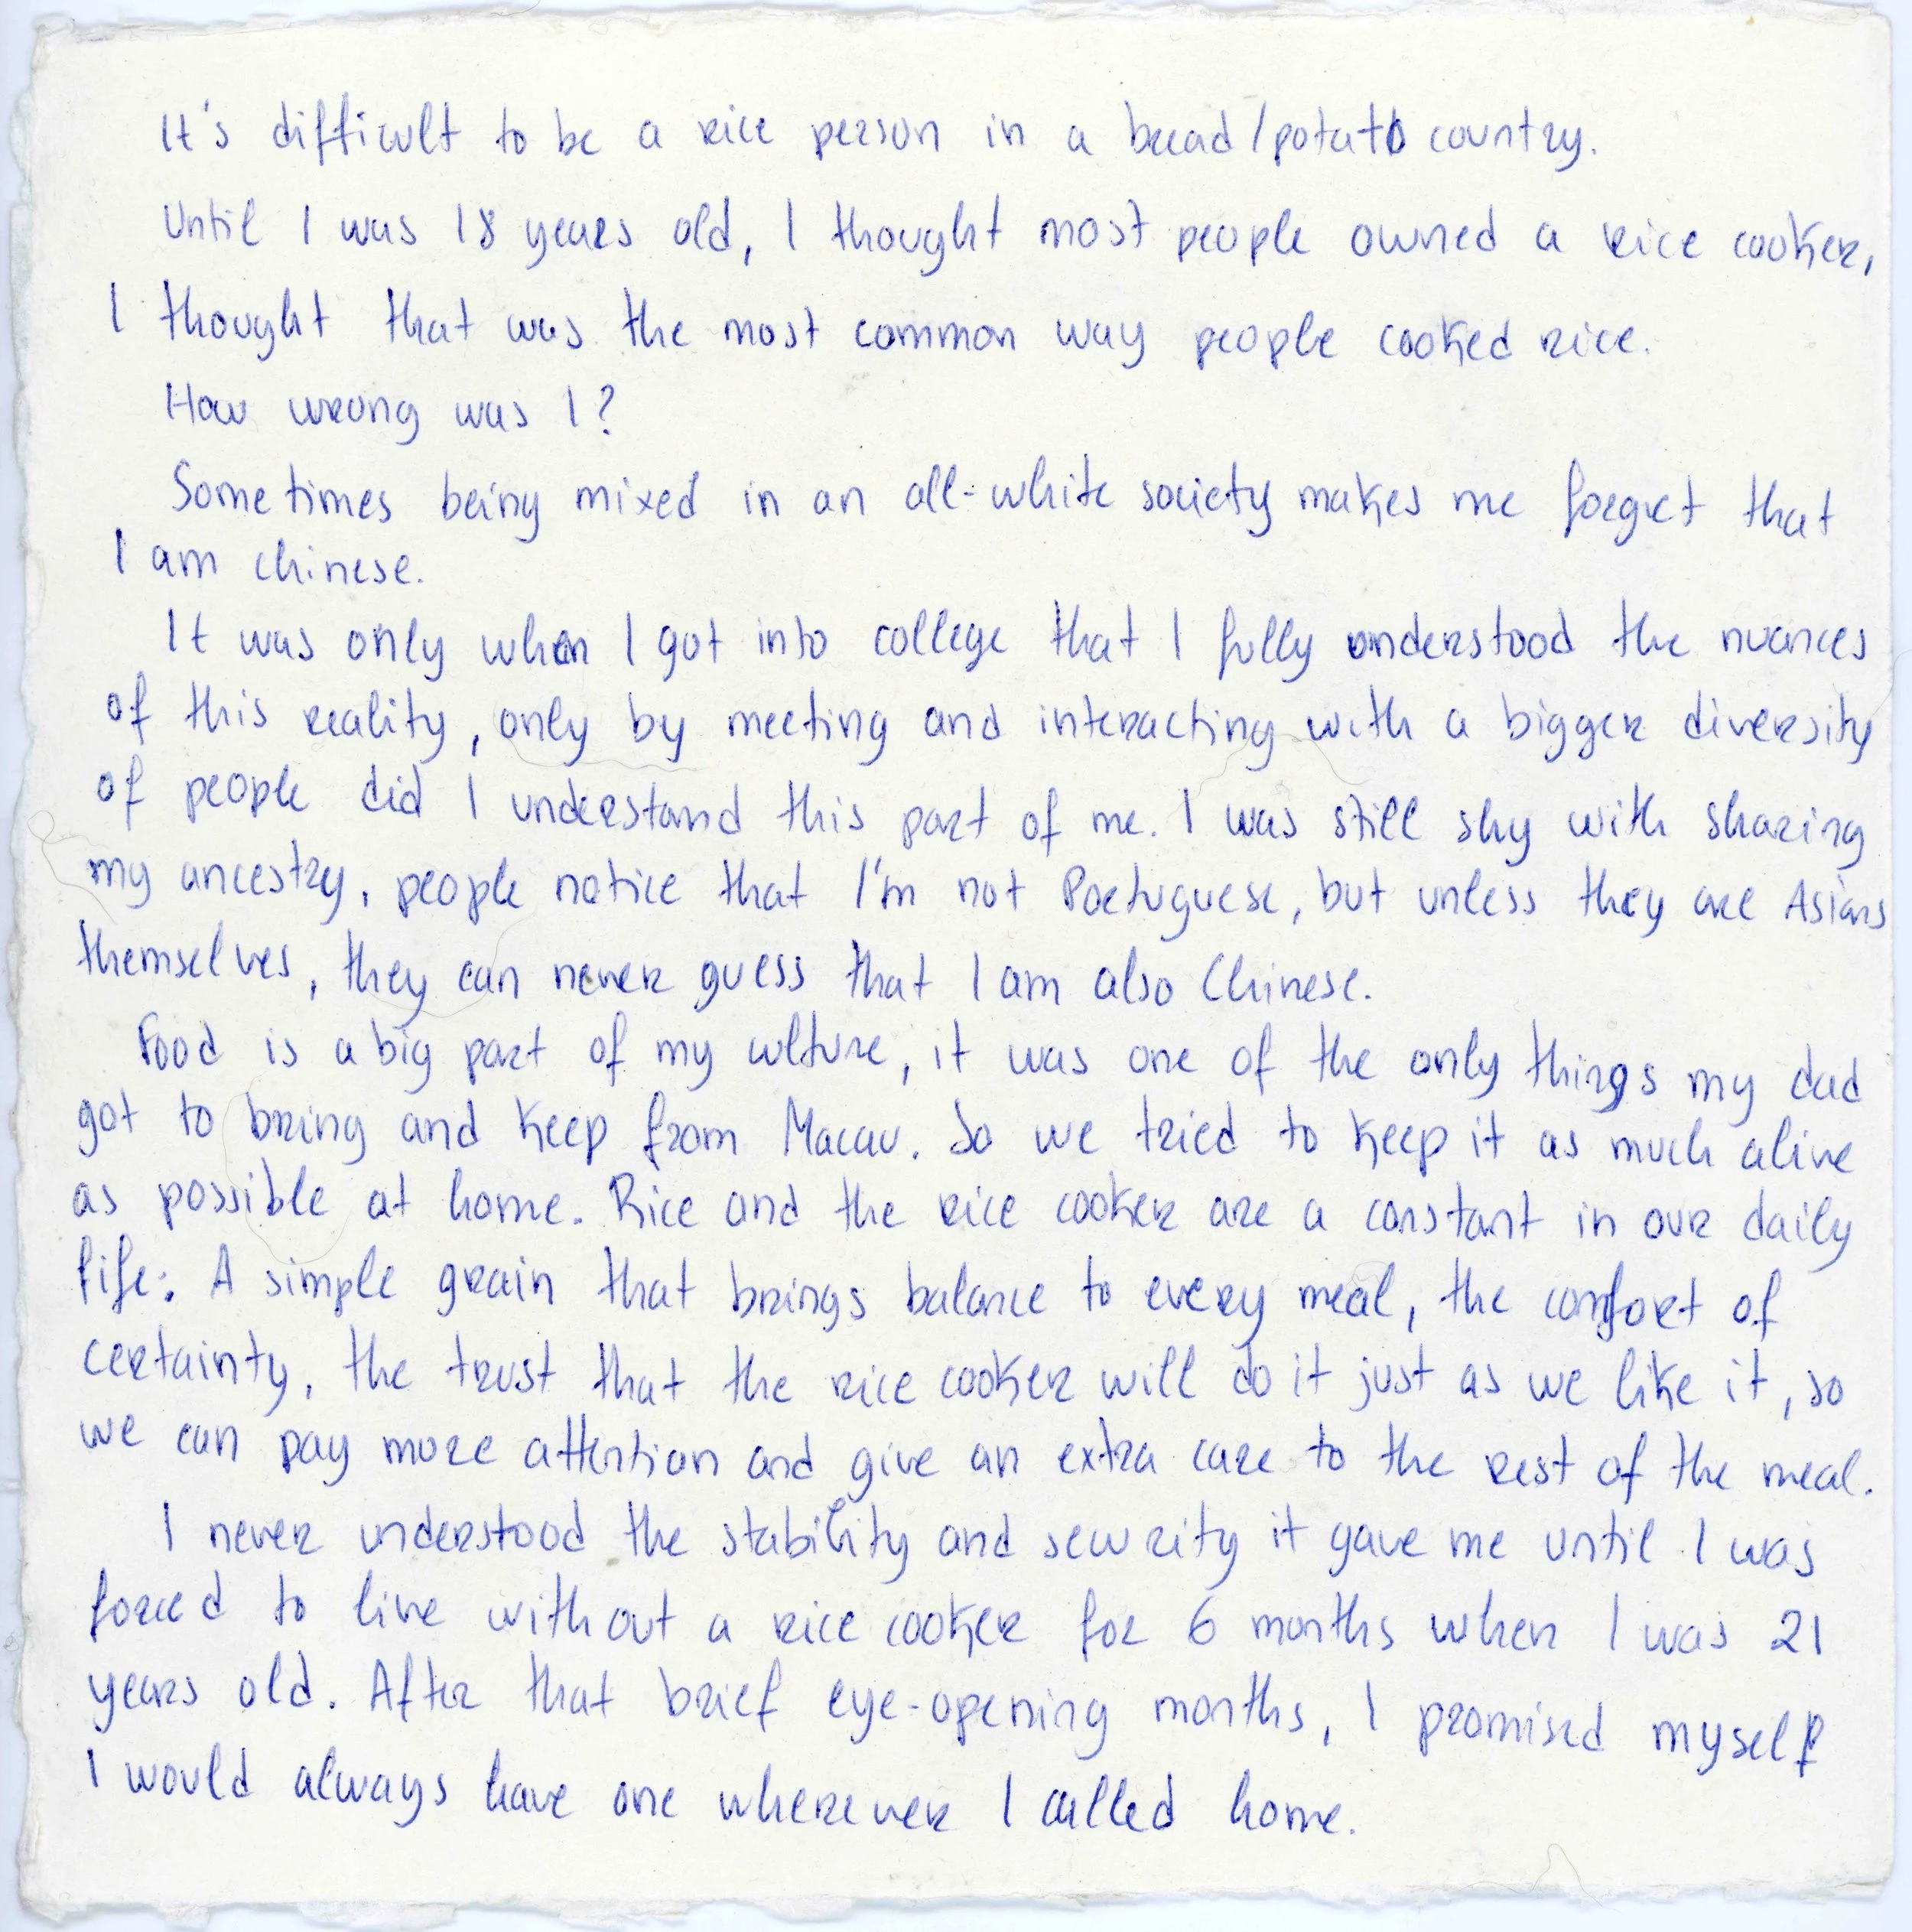 It's difficult to be a rice person in a bread/potato country.
Until I was 18 years old, I thought most people owned a rice cooker,
I thought that was the most common way people cooked rice.
How wrong was I?
Sometimes being mixed in an all-white society makes me forget that
I am chinese.
It was only when I got into college that I fully understood the nuances
of this reality, only by meeting and interacting with a bigger diversity
of people did I understand this part of me. I was still shy with sharing
my ancestry, people notice that I'm not Portuguese, but unless they are Asians
themselves, they can never guess that I am also Chinese.
Food is a big part of my culture, it was one of the only things my dad
got to bring and keep from Macau. So we tried to keep it as much alive
as possible at home. Rice and the rice cooker are a constant in our daily
life: A simple grain that brings balance to every meal, the comfort of
certainty, the trust that the rice cooker will do it just as we like it, so
we can pay more attention and give an extra care to the rest of the meal.
I never understood the stability and security it gave me until I was
forced to live without a rice cooker for 6 months when I was 21
years old. After that brief eye-opening months, I promised myself
I would always have one wherever I called home.